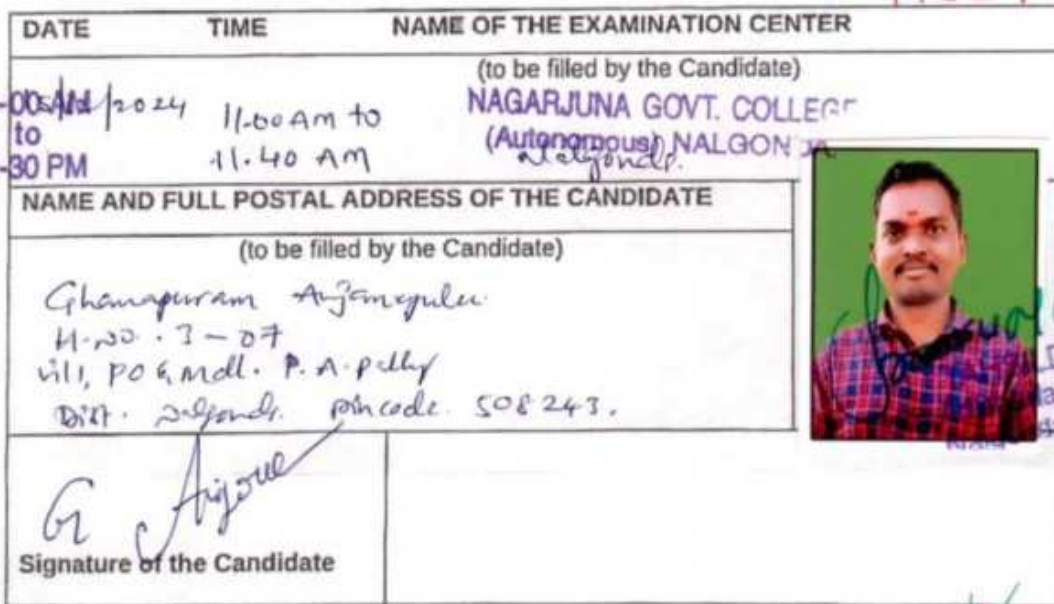 DATE TIME NAME OF THE EXAMINATION CENTER
(to be filled by the Candidate)
/2024 11.00 AM to
11.40 AM
to
-30 PM
NAGARJUNA GOVT. COLLEGE
(Autonomous) NALGONDA
Nalgonda.
NAME AND FULL POSTAL ADDRESS OF THE CANDIDATE
(to be filled by the Candidate)
Ghanapuram Anjaneyulu
H.NO. 3-07
vill, PO & Mdl. P.A. pally
Dist. Nalgonda. Pincode. 508243.
G
Signature of the Candidate